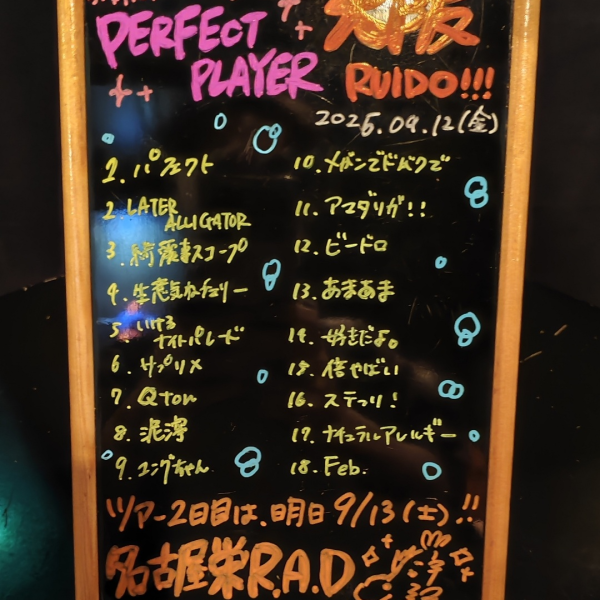 PERFECT
PLAYER
大阪
RUIDO!!!
2025.09.12(金)
1. パフェクト
2. LATER
ALLIGATOR
3. 綺麗事スコープ
4. 生意気なチェリー
5. いけろ
ナイトパレード
6. サプリメ
7. Qton
8. 泥濘
9. ユングちゃん
10. メガンでドルクで
11. アマダリガ!!
12. ビードロ
13. あまあま
14. 好きだよ。
15. 倍やばい
16. ステップ!
17. ナチュラルアレルギー
18. Feb.
ツアー2日目は、明日 9/13(土)!!
名古屋栄R.A.D